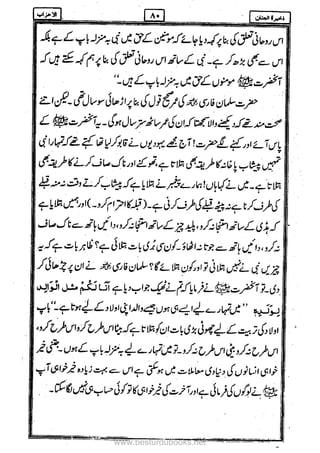 ذخیرۃ الجنان ۸۰ الاحزاب
اس روحانی تعلق کی بنا پر کہہ دیا جائے کہ مومنین کے حق میں نبی بمنزلہ باپ کے ہے بلکہ
اس سے بھی بڑھ کر ہے۔ نبی کے ساتھ اس روحانی تعلق کی بنا پر ہم کہہ سکتے ہیں کہ
آنحضرت ﷺ مومنوں کے حق میں بمنزلہ باپ کے ہیں۔"
حضرت سلمان فارسی ؓ کی عمر صحیح قول کی بنا پر اڑھائی سو سال تھی۔ لیکن اتنے
صحت مند تھے کہ دیکھنے والا سمجھتا کہ ان کی عمر ساٹھ ستر سال ہوگی۔ یہ آنحضرت ﷺ کے
پاس آئے اور کہنے لگے حضرت! آج مجھے یہودیوں نے قابو کر لیا تھا کہتے تھے کہ تمہارا نبی
تمہیں پیشاب پاخانہ کا طریقہ بھی بتلاتا ہے، تھوکنے اور ناک صاف کرنے کا طریقہ بھی
بتلاتا ہے۔ میں نے کہا ہاں! ہمارے پیغمبر نے بتلایا ہے کہ پیشاب کرتے وقت نہ منہ قبلے
کی طرف کرنا ہے نہ پیٹھ قبلے کی طرف کرنی ہے۔ (قبلہ کا احترام کرو۔) اور ہمیں بتلایا ہے
کہ ہڈی کے ساتھ استنجا نہ کرو، پلید چیز کے ساتھ استنجا نہ کرو، دائیں ہاتھ سے ناک صاف
نہ کرو، دائیں ہاتھ سے جوتا نہ اٹھاؤ۔ کون سی بُری بات بتلائی ہے؟ ظاہر بات ہے کہ یہ
چیزیں نبی نے نہیں بتلانی تو اور کون بتلائے گا؟ سلمان فارسی ؓ نے ان پر چڑھائی کر
دی۔ تو آنحضرت ﷺ نے فرمایا کہ تم نے ٹھیک جواب دیا ہے اَنَا لَکُمْ مِثْلُ الْوَالِدِ
لِوَلَدِہٖ " میں تمہارے لیے ایسے ہی ہوں جیسے والد اپنی اولاد کے لیے ہوتا ہے۔" باپ
اولاد کی تربیت کے لیے چھوٹی بڑی بات ان کو بتلاتا ہے کہ بیٹا اس طرح کرو اس طرح کرو،
اس طرح نہ کرو بیٹی اس طرح نہ کرو۔ تو میں تمہارے لیے بمنزلہ باپ کے ہوں۔ جتنی خیر
خواہی انسانوں کی دنیاوی معاملات میں ہو سکتی ہے اس سے بہت زیادہ خیر خواہی آپ
ﷺ نے لوگوں کی فرمائی ہے اور آخرت کی خیر خواہی کا تو کوئی حساب ہی نہیں لگا سکتا۔
www.besturdubooks.net